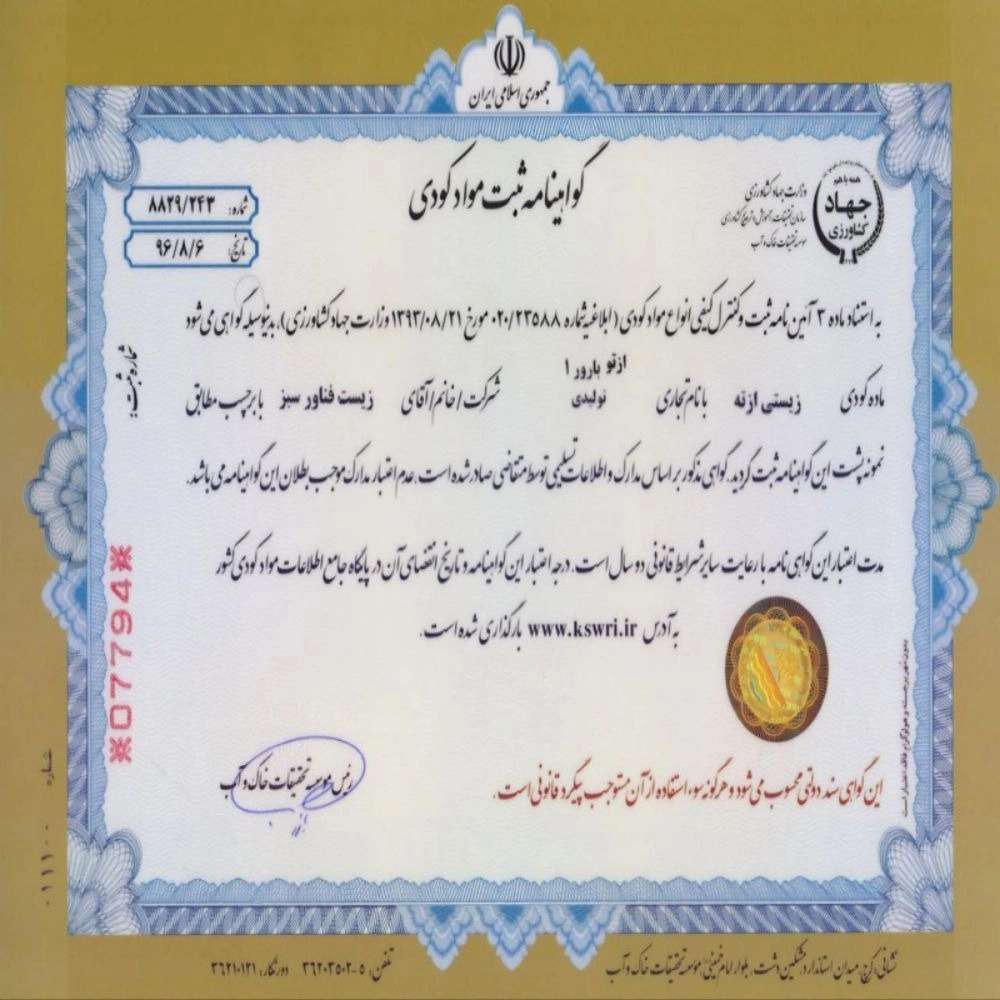 جمهوری اسلامی ایران
همه با هم
جهاد
کشاورزی
وزارت جهاد کشاورزی
سازمان تحقیقات، آموزش و ترویج کشاورزی
موسسه تحقیقات خاک و آب
گواهینامه ثبت مواد کودی
شماره: ۸۸۲۹/۲۴۳
تاریخ: ۹۶/۸/۶
به استناد ماده ۳ آیین نامه ثبت و کنترل کیفی انواع مواد کودی (ابلاغیه شماره ۰۲۰/۲۳۵۸۸ مورخ ۱۳۹۳/۰۸/۲۱ وزارت جهاد کشاورزی)، بدینوسیله گواهی می شود
ماده کودی زیستی ازته با نام تجاری ازتو بارور ۱ تولیدی شرکت/خانم/آقای زیست فناور سبز با برچسب مطابق
نمونه پشت این گواهینامه ثبت گردید. گواهی مذکور بر اساس مدارک و اطلاعات تسلیمی توسط متقاضی صادر شده است. عدم اعتبار مدارک موجب بطلان این گواهینامه می باشد.
مدت اعتبار این گواهی نامه با رعایت سایر شرایط قانونی دو سال است. درجه اعتبار این گواهینامه و تاریخ انقضای آن در پایگاه جامع اطلاعات مواد کودی کشور
به آدرس www.kswri.ir بارگذاری شده است.
رئیس موسسه تحقیقات خاک و آب
این گواهی سند دولتی محسوب می شود و هرگونه سوء استفاده از آن مستوجب پیگرد قانونی است.
شماره ثبت:
※07794※
بدون مهر برجسته و هولوگرام فاقد اعتبار است
شماره ۰۱۱۱۰۰
نشانی: کرج، میدان استاندارد، مشکین دشت، بلوار امام خمینی، موسسه تحقیقات خاک و آب
تلفن: ۵-۳۶۲۰۳۵۰۲ دورنگار: ۳۶۲۱۰۱۲۱